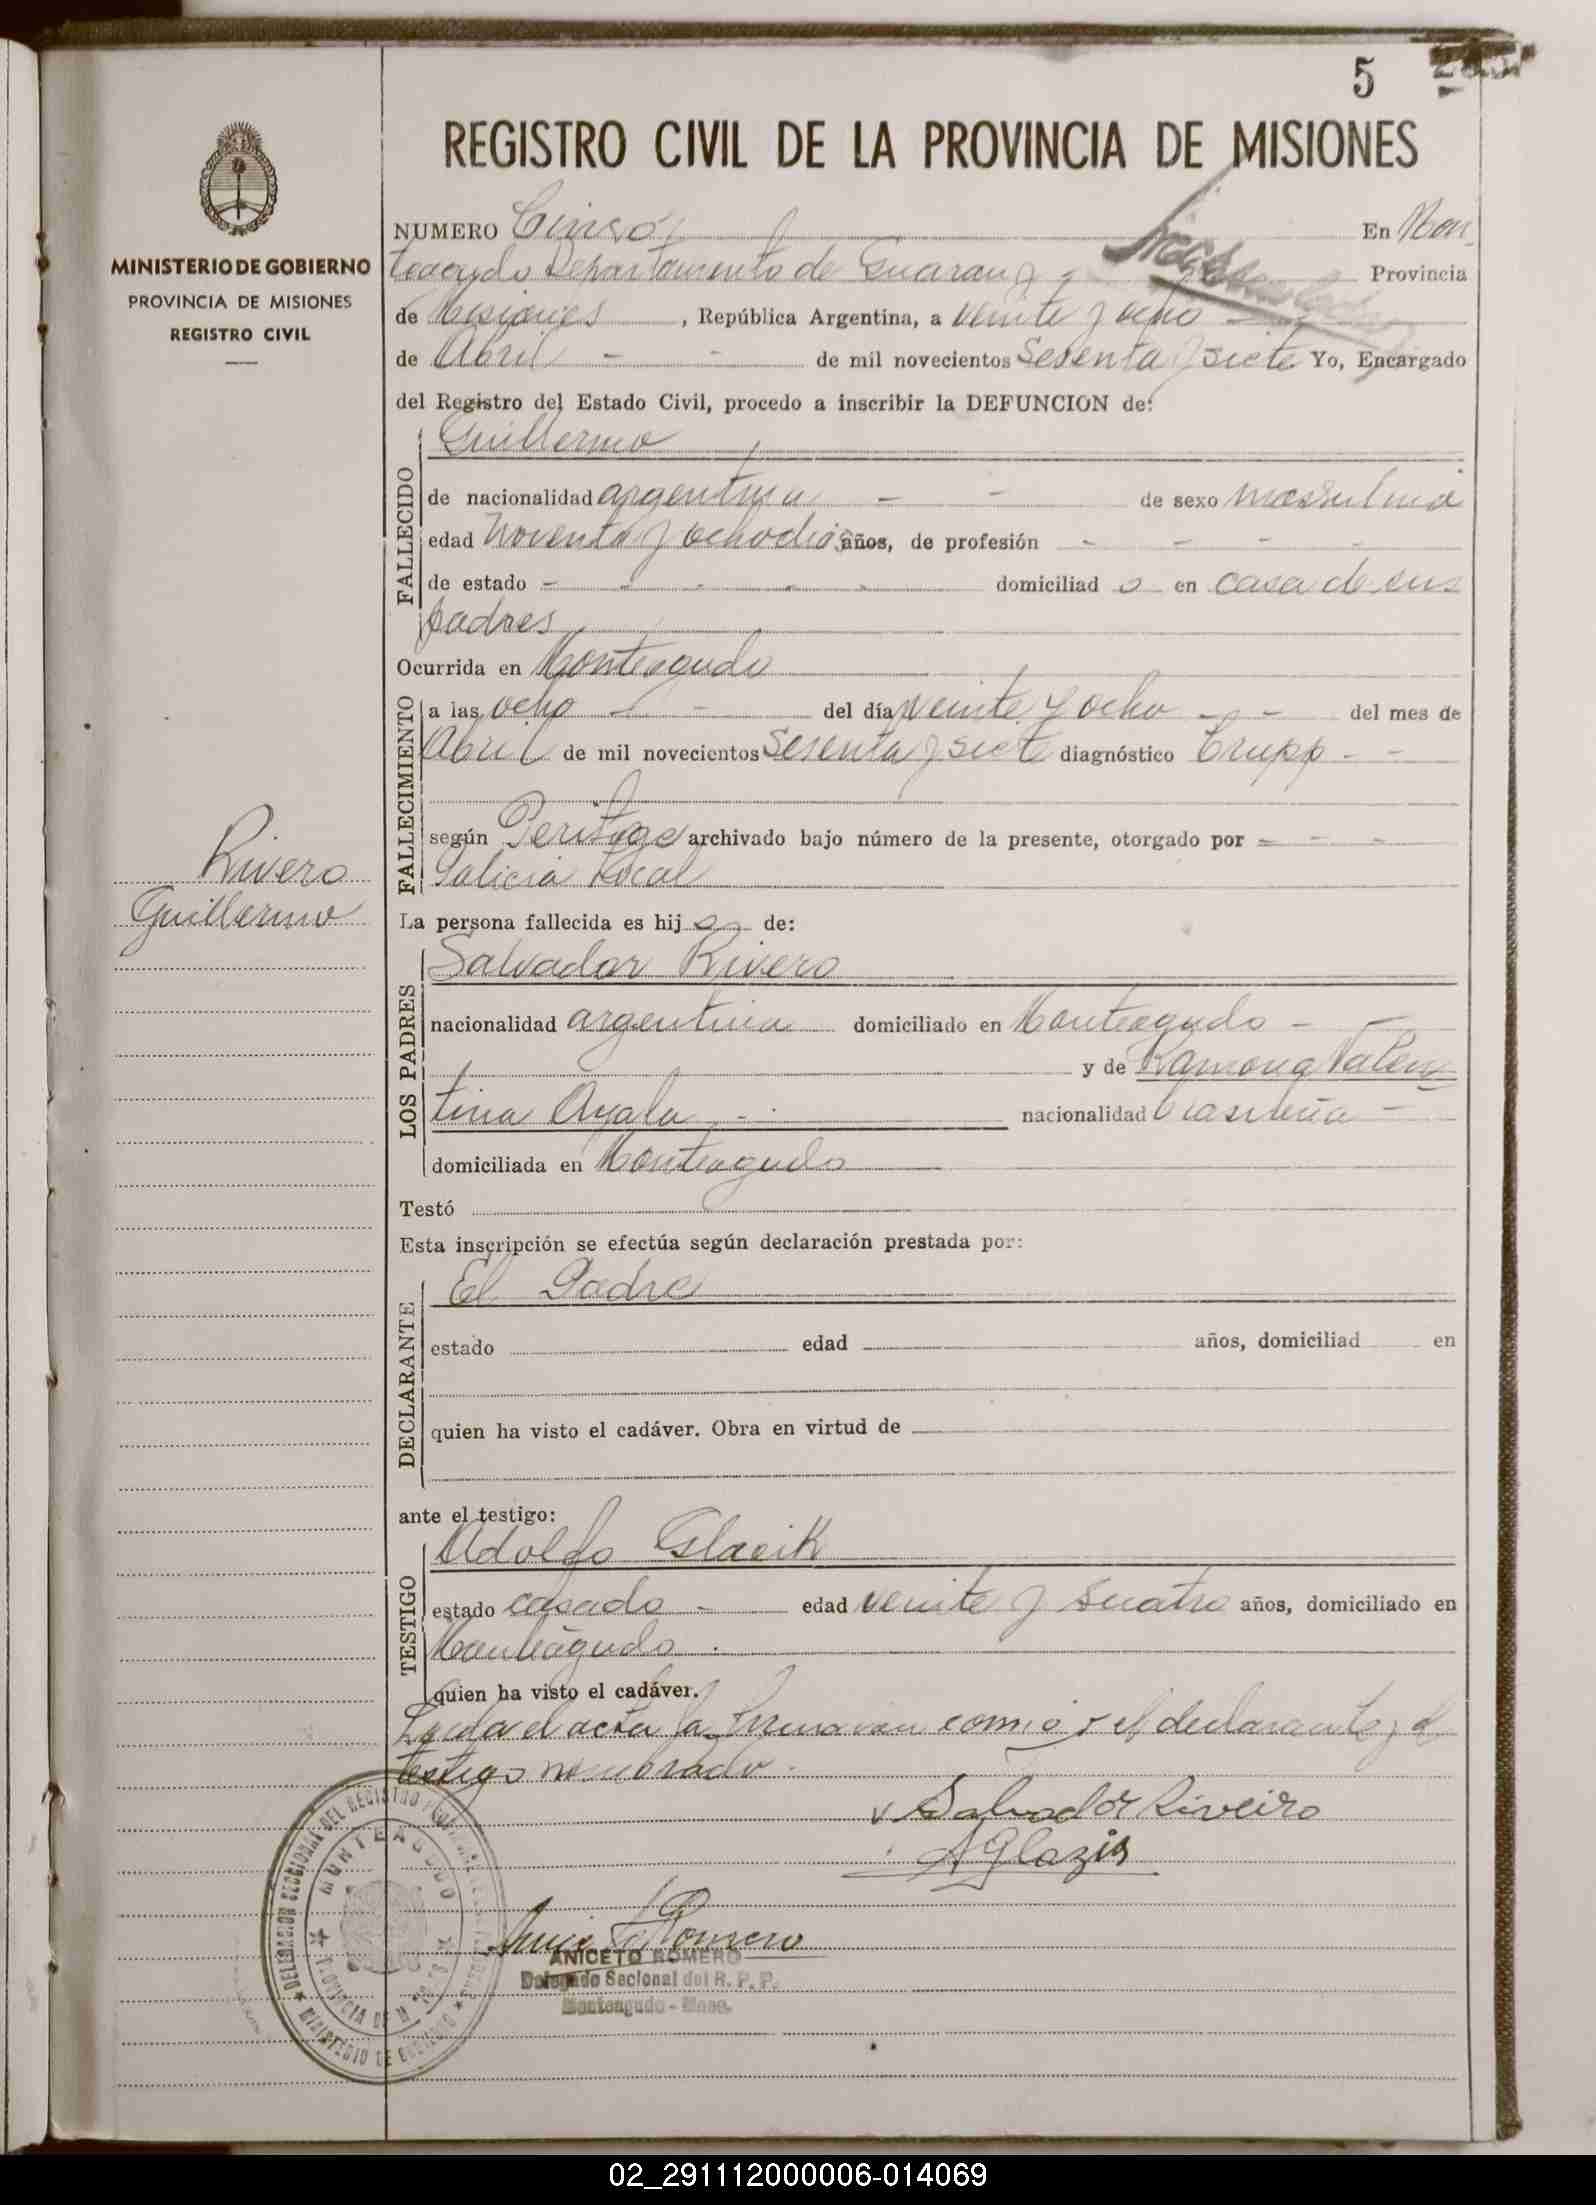 5
REGISTRO CIVIL DE LA PROVINCIA DE MISIONES
MINISTERIO DE GOBIERNO
PROVINCIA DE MISIONES
REGISTRO CIVIL
NUMERO Cinco En Mon
teagudo Departamento de Guarany Provincia
de Misiones, República Argentina, a veinte y ocho
de Abril - - de mil novecientos Sesenta y siete Yo, Encargado
del Registro del Estado Civil, procedo a inscribir la DEFUNCION de:
FALLECIDO
Guillermo
de nacionalidad argentina - - de sexo masculino
edad noventa y ocho dias años, de profesión - - - -
de estado - - - - - domiciliad o en casa de sus
padres
Ocurrida en Monteagudo
FALLECIMIENTO
a las ocho - - del día veinte y ocho - - del mes de
Abril de mil novecientos Sesenta y siete diagnóstico Crupp - -
según Peritage archivado bajo número de la presente, otorgado por - - -
Policia Local
Rivero
Guillermo
La persona fallecida es hij o de:
LOS PADRES
Salvador Rivero
nacionalidad argentina domiciliado en Monteagudo - -
y de Ramona Valen
tina Ayala - . nacionalidad brasileña -
domiciliada en Monteagudo
Testó
Esta inscripción se efectúa según declaración prestada por:
DECLARANTE
El Padre
estado edad años, domiciliad en
quien ha visto el cadáver. Obra en virtud de
ante el testigo:
TESTIGO
Adolfo Glacik
estado casado - edad veinte y cuatro años, domiciliado en
Monteagudo .
quien ha visto el cadáver.
Leida el acta la firmaran conmigo el declarante y el
testigo nombrado.
Salvador Riveiro
AGlazik
Aniceto Romero
ANICETO ROMERO
Delegado Secional del R. P. P.
Monteagudo - Mnes.
DELEGACION SECCIONAL DEL REGISTRO
MONTEAGUDO
PROVINCIA DE MISIONES
MINISTERIO DE GOBIERNO
02_291112000006-014069